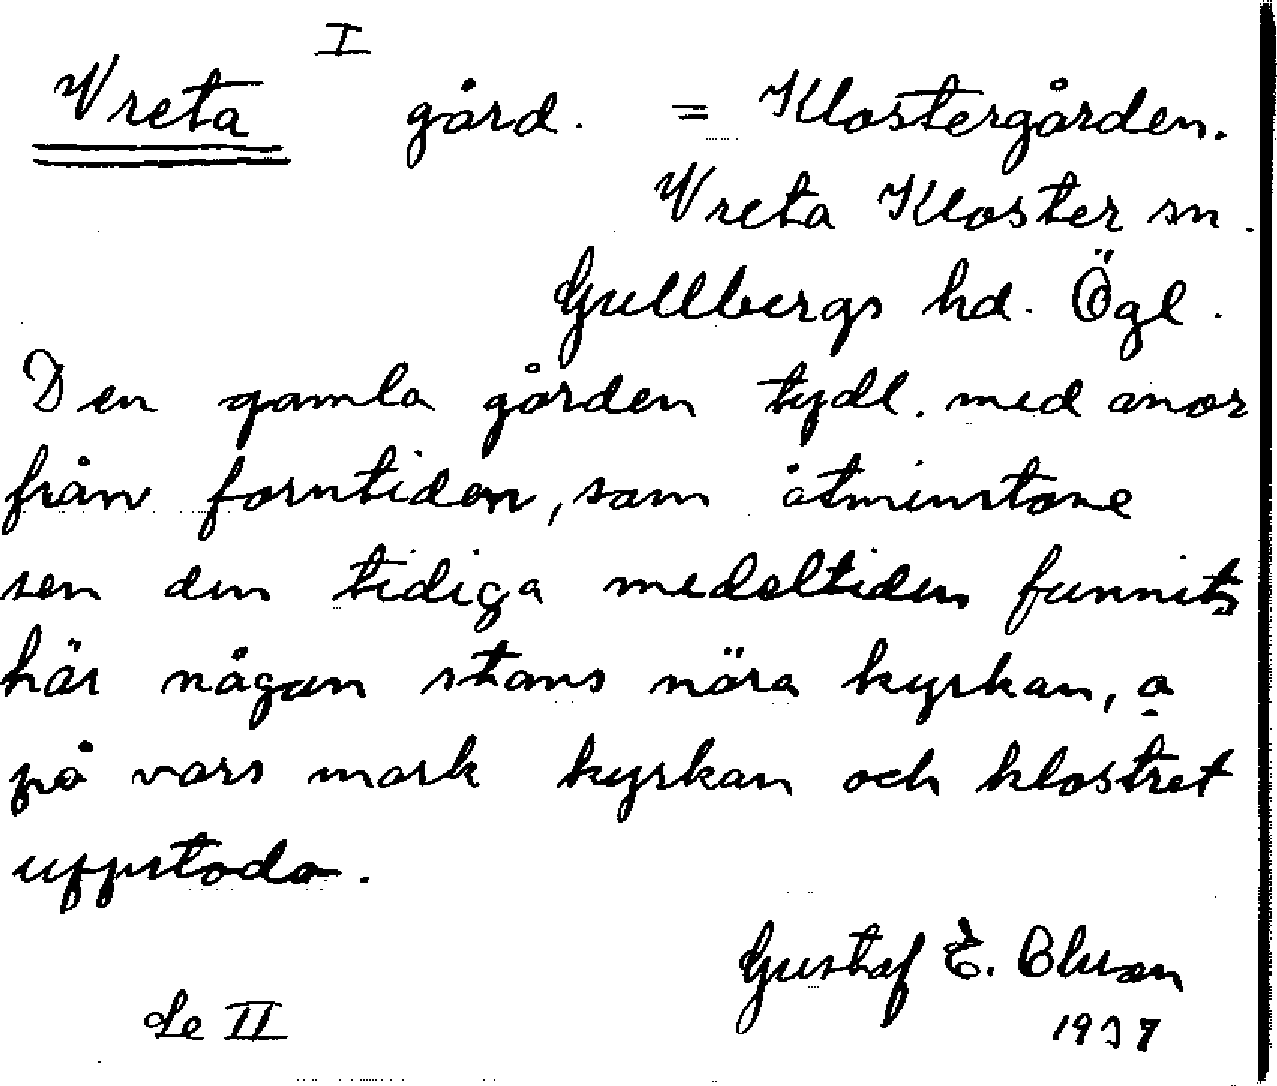 I
Vreta gård. = Klostergården.
Vreta Kloster sn.
Gullbergs hd. Ögl.
Den gamla gården tydl. med anor
från forntiden, som åtminstone
sen den tidiga medeltiden funnits
här någon stans nära kyrkan, o
på vars mark kyrkan och klostret
uppstodo.
Gustaf E.
Se II 1937